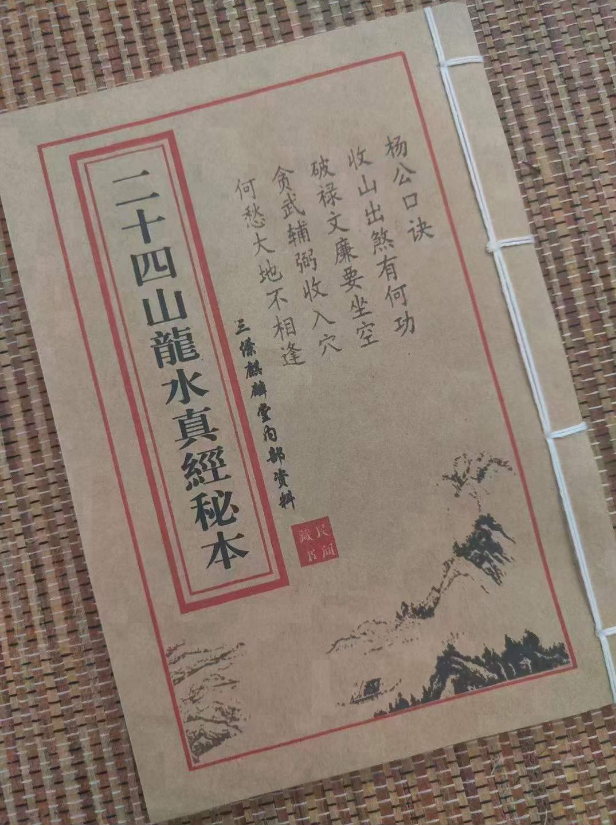 杨公口诀
收山出煞有何功
破禄文廉要坐空
贪武辅弼收入穴
何愁大地不相逢
三僚麒麟堂内部资料
二十四山龍水真經秘本
民间
藏书